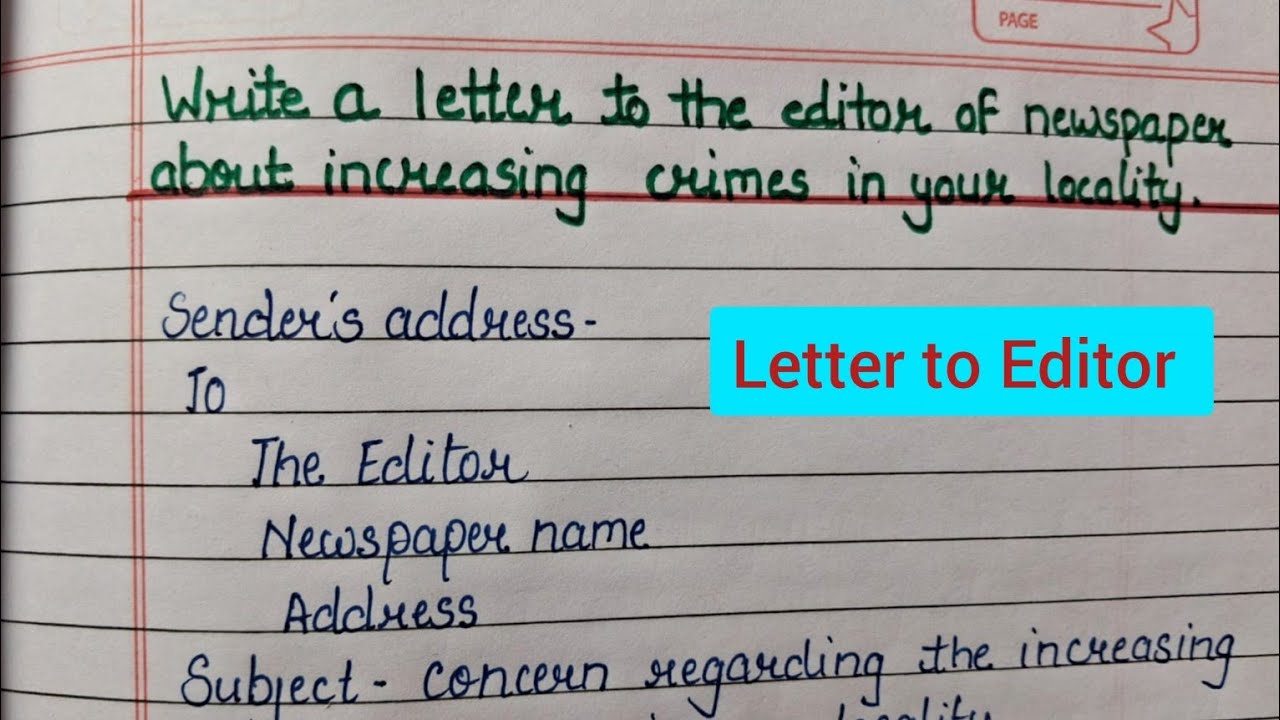 PAGE
Write a letter to the editor of newspaper
about increasing crimes in your locality.
Sender's address-
Letter to Editor
To
The Editor
Newspaper name
Address
Subject- concern regarding the increasing
locality